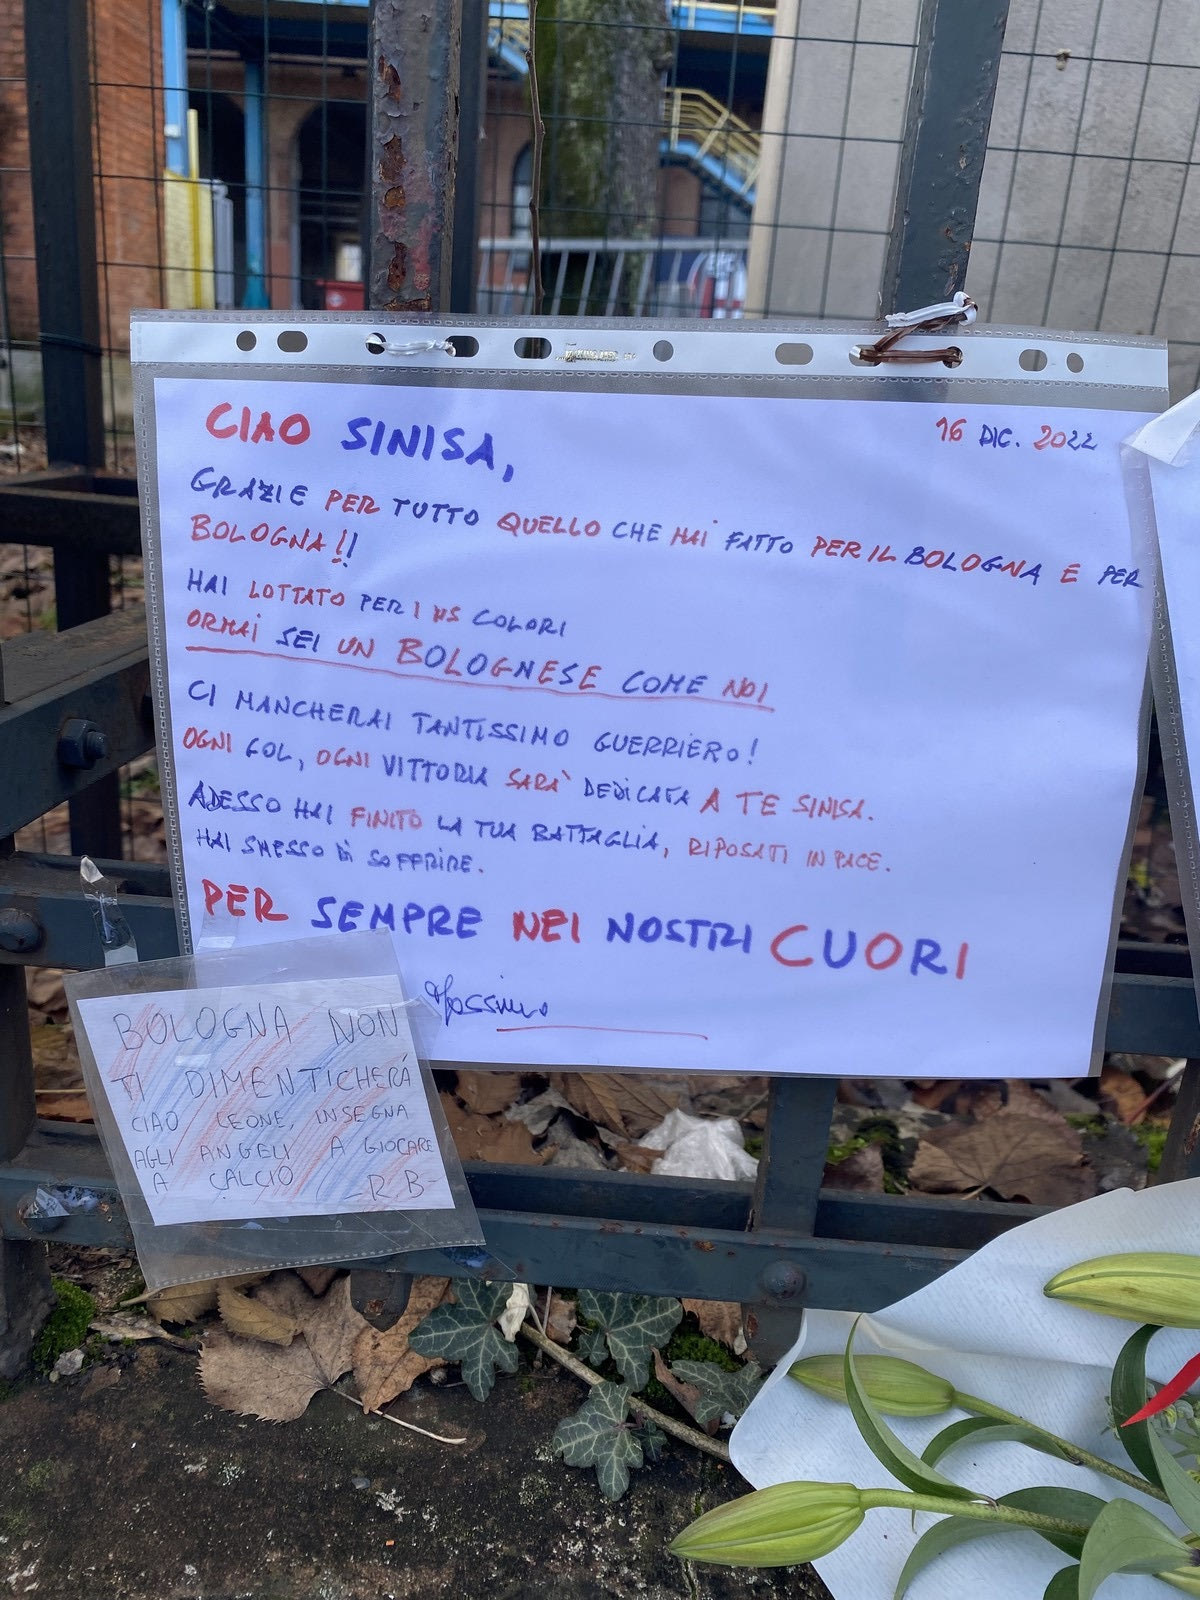 CIAO SINISA,
16 DIC. 2022
GRAZIE PER TUTTO QUELLO CHE HAI FATTO PER IL BOLOGNA E PER
BOLOGNA!!
HAI LOTTATO PER I NS COLORI
ORMAI SEI UN BOLOGNESE COME NOI
CI MANCHERAI TANTISSIMO GUERRIERO!
OGNI GOL, OGNI VITTORIA SARA' DEDICATA A TE SINISA.
ADESSO HAI FINITO LA TUA BATTAGLIA, RIPOSATI IN PACE.
HAI SMESSO DI SOFFRIRE.
PER SEMPRE NEI NOSTRI CUORI
Massimo
BOLOGNA NON
TI DIMENTICHERÁ
CIAO LEONE, INSEGNA
AGLI ANGELI A GIOCARE
A CALCIO -R B-